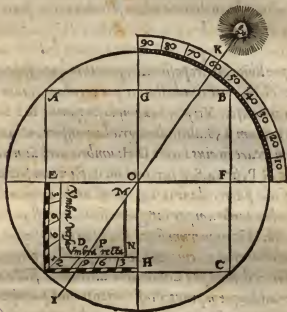 K
90 80 70 60 50 40 30 20 10
A G B
E O F
M
Vmbra versa
3 6 9
D P
Vmbra recta
N
12 9 6 3 H C
I